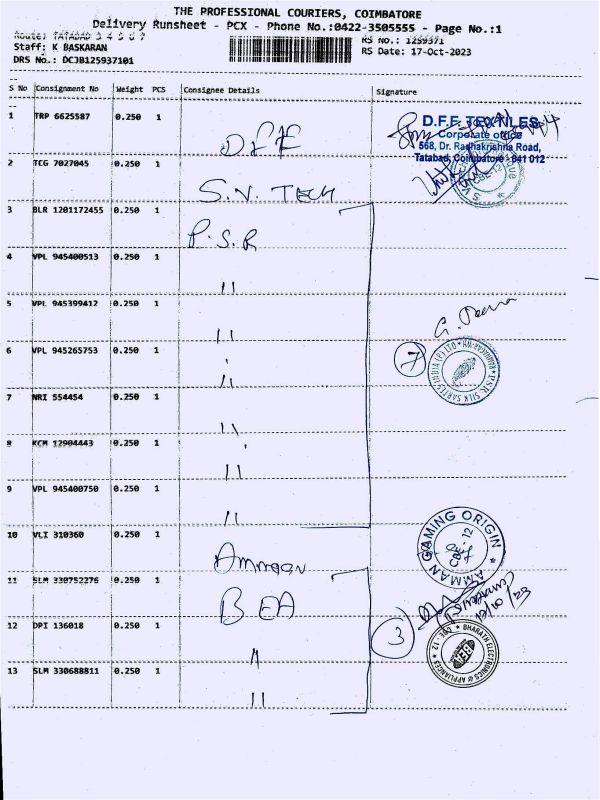 THE PROFESSIONAL COURIERS, COIMBATORE
Delivery Runsheet - PCX - Phone No.:0422-3505555 - Page No.:1
Route: TATABAD 3 4 5 6 7
RS No.: 1259371
Staff: K BASKARAN
RS Date: 17-Oct-2023
DRS No.: DCJB125937101
S No Consignment No Weight PCS Consignee Details Signature
1 TRP 6625587 0.250 1 DFF
D.F.F. TEXTILES
Corporate office
568, Dr. Radhakrishna Road,
Tatabad, Coimbatore - 641 012
2 TCG 7027045 0.250 1 S.N. TECH
3 BLR 1201172455 0.250 1 P.S.R
4 VPL 945400513 0.250 1 "
5 VPL 945399412 0.250 1 "
6 VPL 945265753 0.250 1 "
7
PSR SILK SAREES INDIA (P) LTD
7 NRI 554454 0.250 1 "
8 KCM 12904443 0.250 1 "
9 VPL 945400750 0.250 1 "
10 VLI 310360 0.250 1 Amman
AMMAN GAMING ORIGIN
CBE-12
11 SLM 330752276 0.250 1 BEA
12 DPI 136018 0.250 1 "
3
BHARATH ELECTRONICS & APPLIANCES * CBE - 12 *
13 SLM 330688811 0.250 1 "